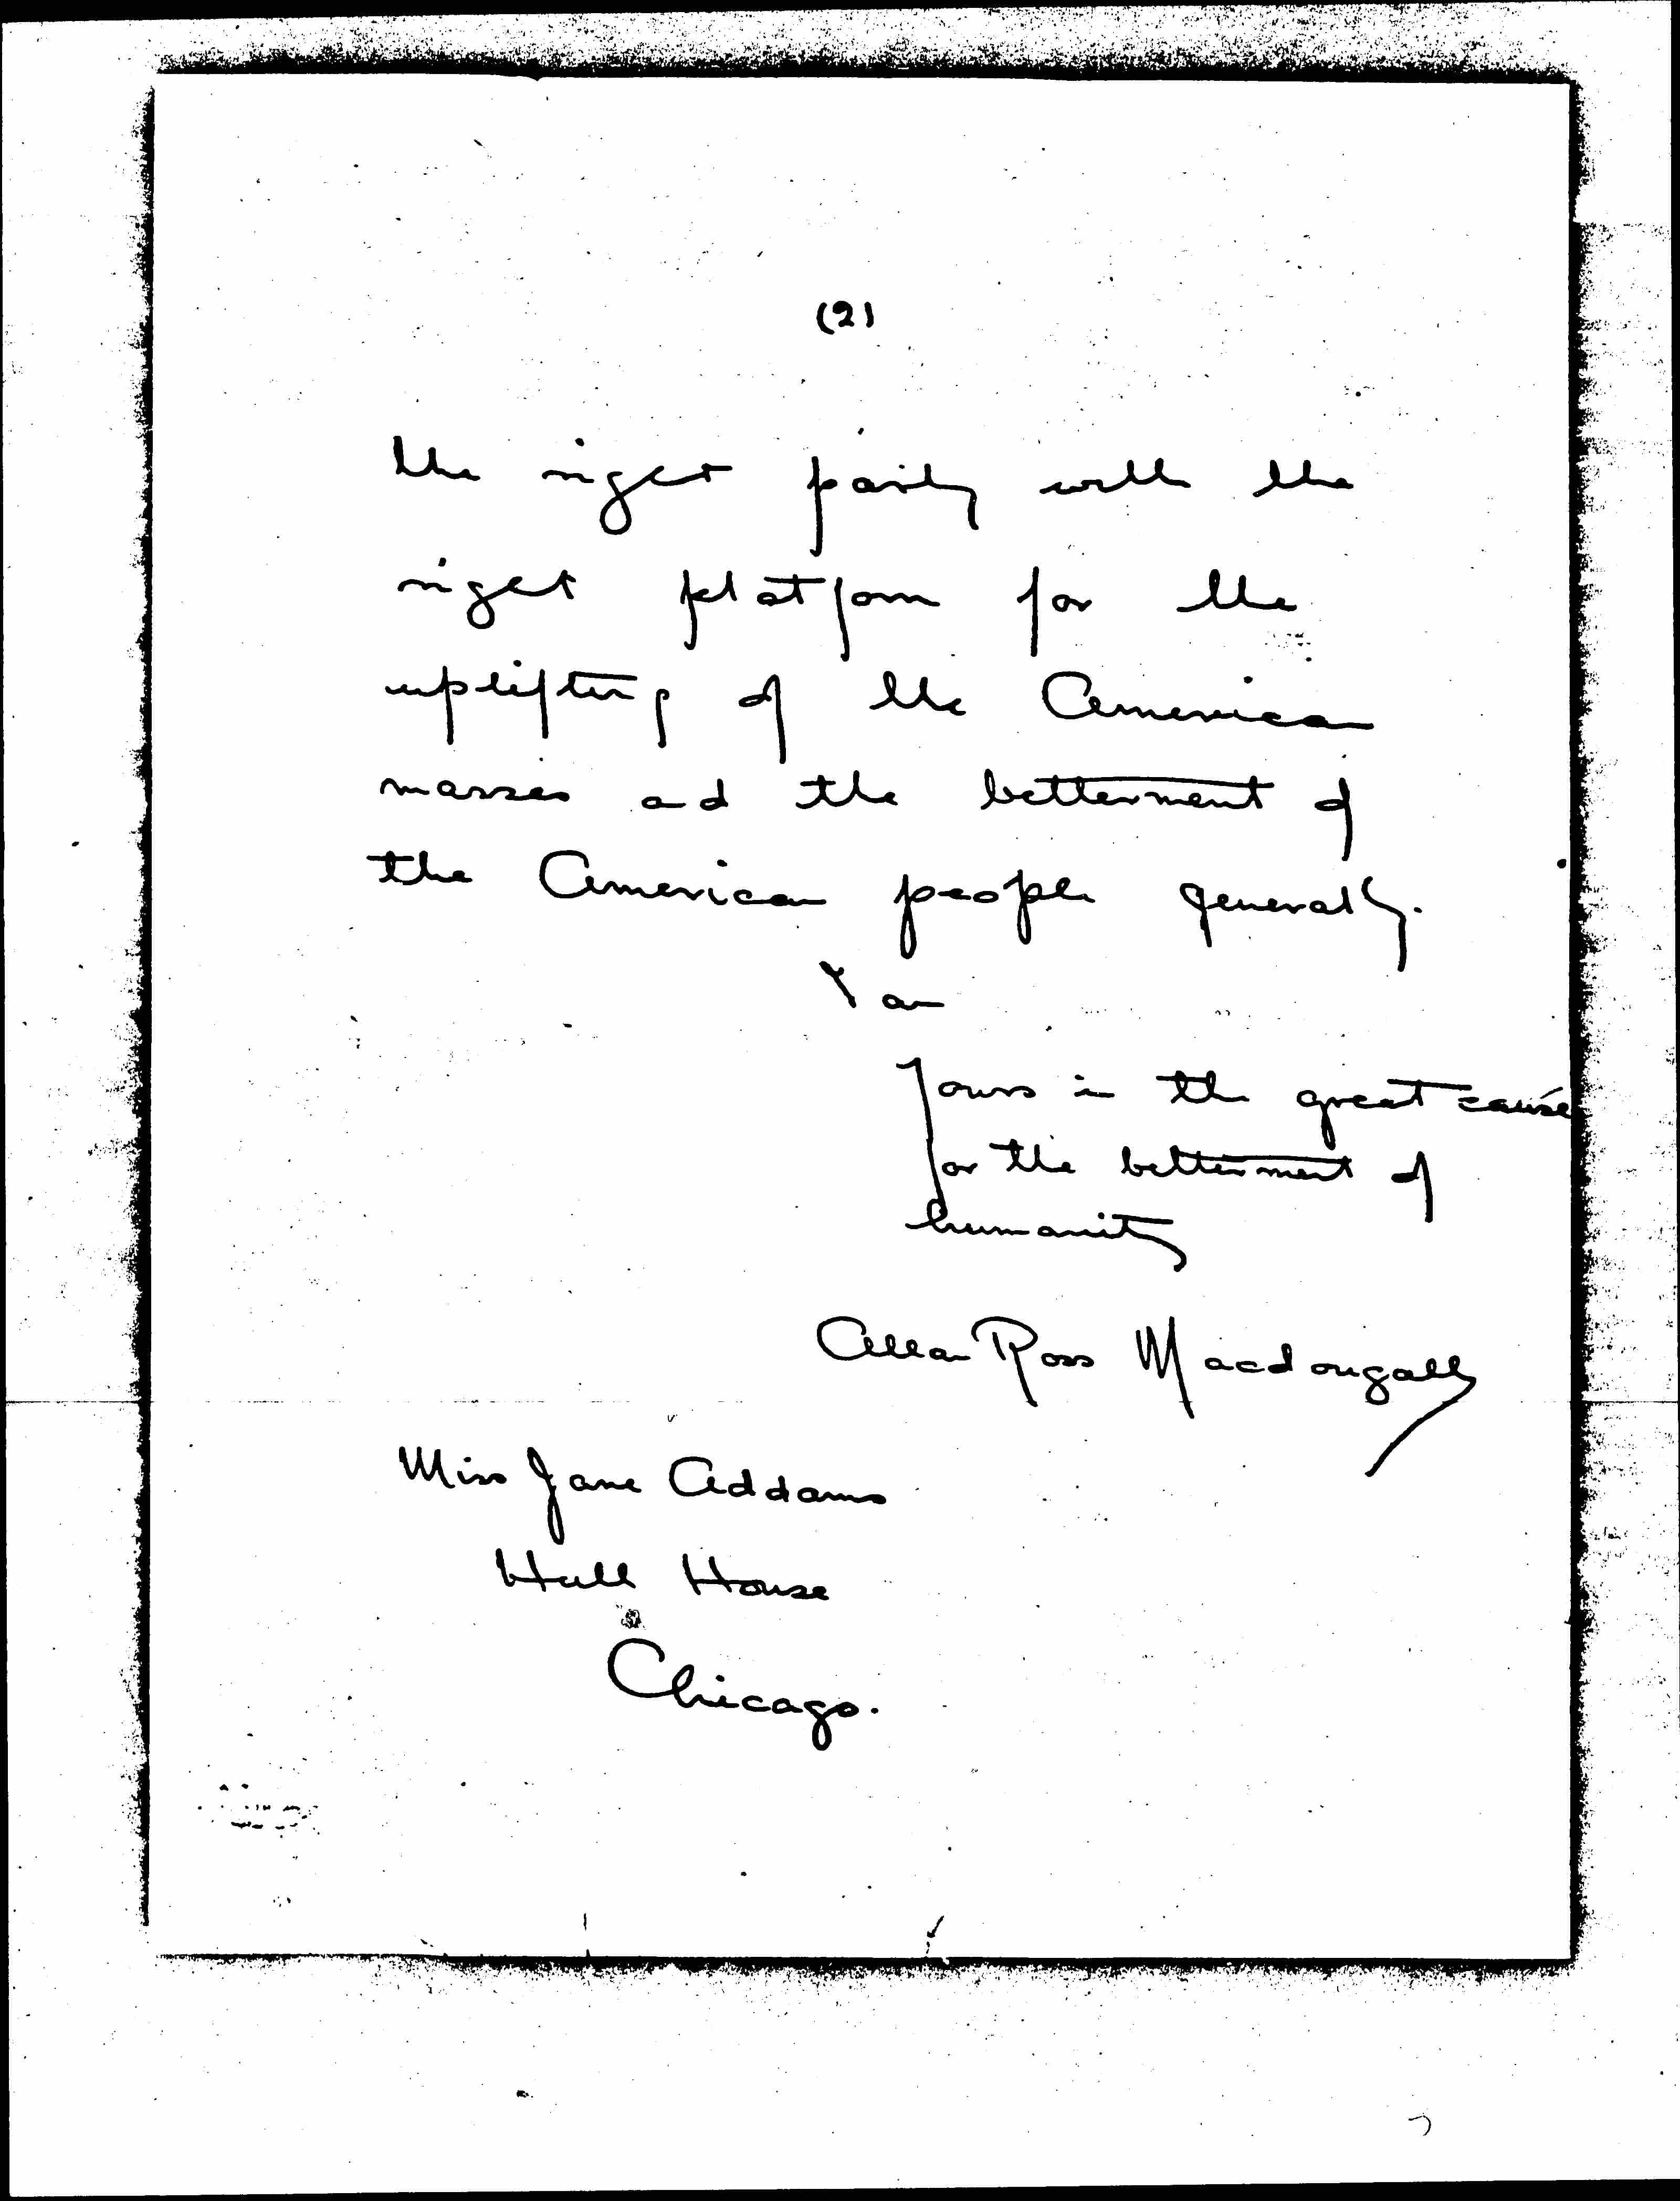 (2)
the right party with the
right platform for the
uplifting of the American
masses and the betterment of
the American people generally.
I am
Yours in the great cause
for the betterment of
humanity
Allan Ross Macdougall
Miss Jane Addams
Hull House
Chicago.